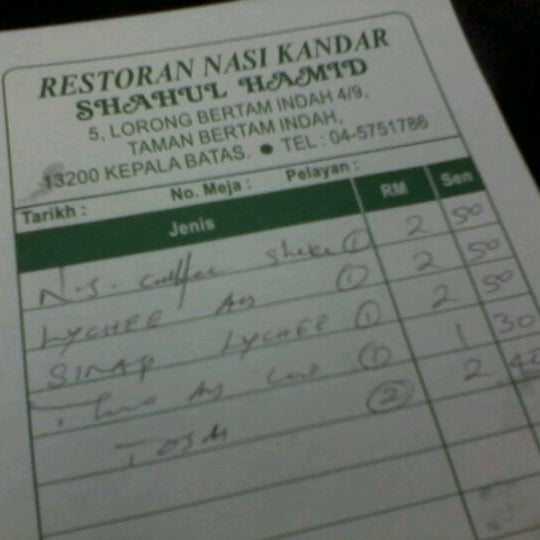 RESTORAN NASI KANDAR
SHAHUL HAMID
5, LORONG BERTAM INDAH 4/9,
TAMAN BERTAM INDAH,
13200 KEPALA BATAS. ● TEL : 04-5751786
Tarikh : No. Meja : Pelayan :
Jenis RM Sen
N.S. coffee shake 1 2 50
LYCHEE Ais 1 2 50
SIRAP LYCHEE 1 2 50
Ais 1 1 30
TOSAI 2 2 40